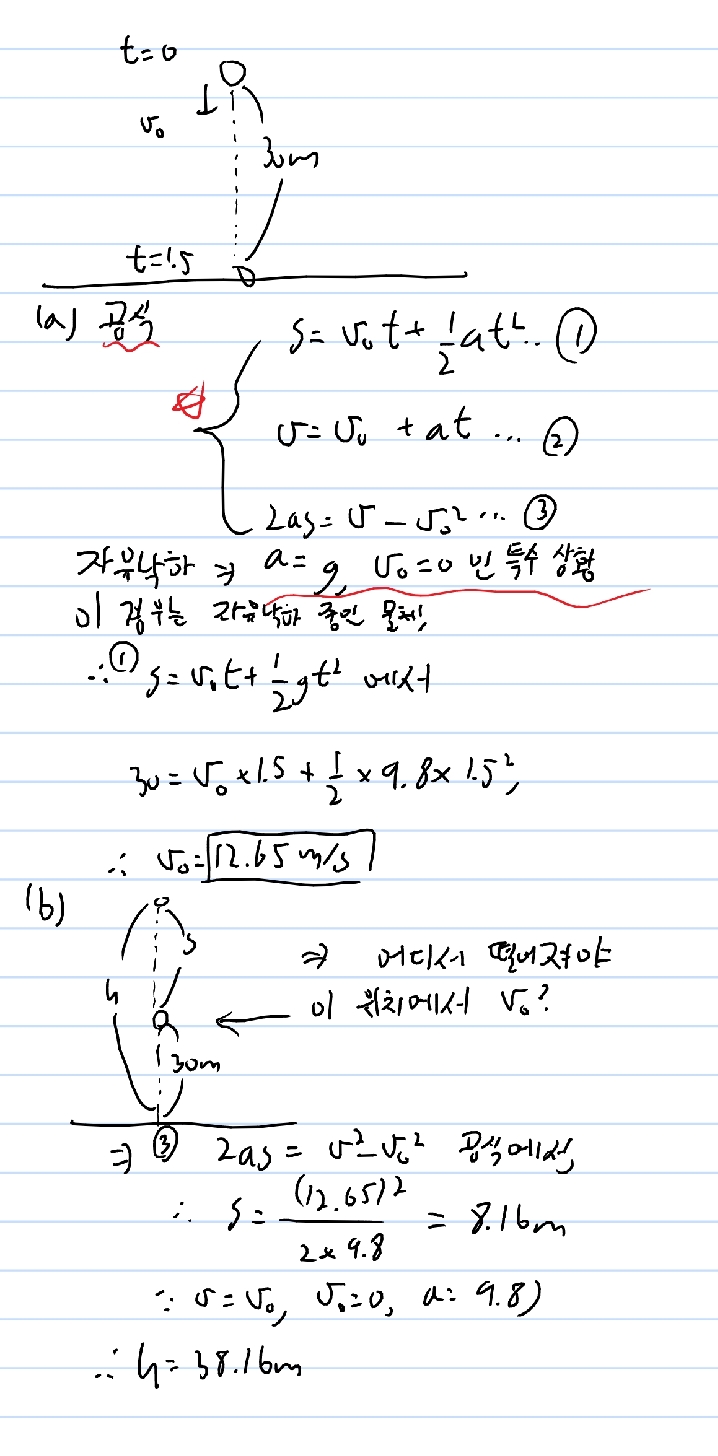 t=0
v₀
30m
t=1.5
(a) 공식
S= v₀t+ 1/2 at² .. ①
v= v₀ + at ... ②
2as= v - v₀² ... ③
자유낙하 ⇒ a= g, v₀=0 인 특수 상황
이 경우는 자유낙하 중인 물체,
∴ ① S= v₀t+ 1/2 gt² 에서
30= v₀ ×1.5 + 1/2 × 9.8× 1.5²,
∴ v₀= 12.65 m/s
(b)
s
h
⇒ 어디서 떨어져야
이 위치에서 v₀?
30m
⇒ ③ 2as = v²-v₀² 공식에서,
∴ S= (12.65)² / 2×9.8 = 8.16m
∵ v=v₀, v₀=0, a= 9.8)
∴ h= 38.16m